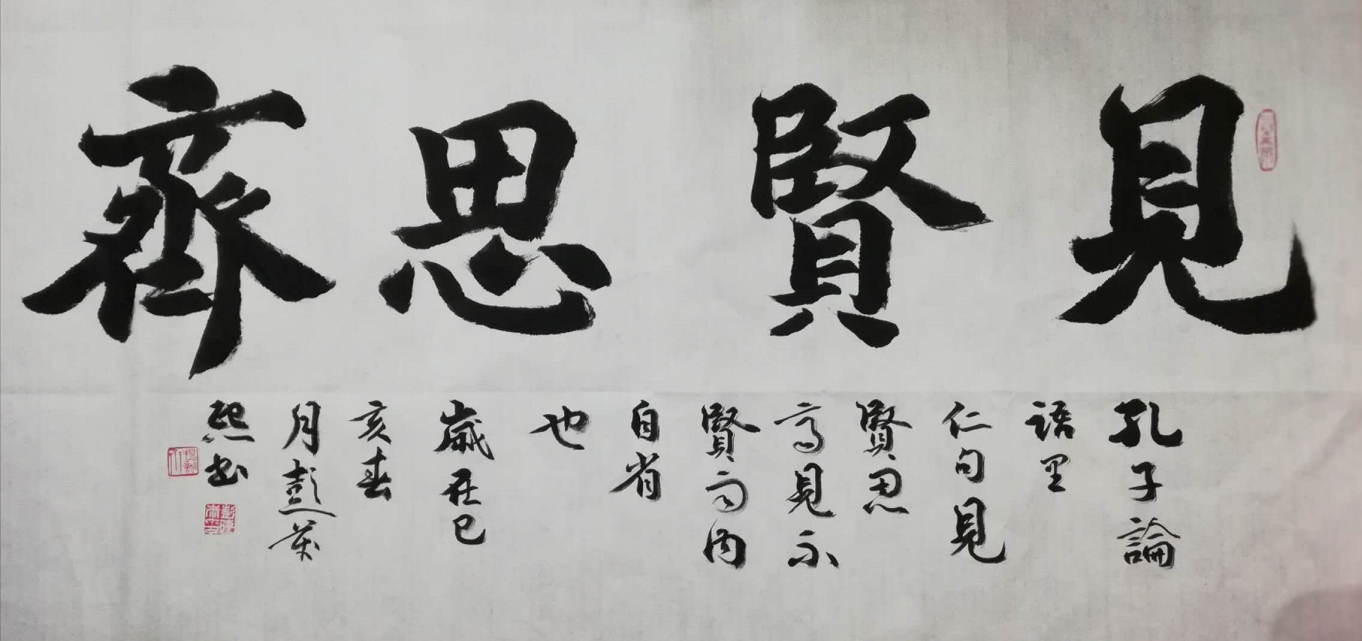 見賢思齊
孔子論
語里
仁句見
賢思
齊見不
賢而內
自省
也
歲在己
亥春
月彭英
熙书